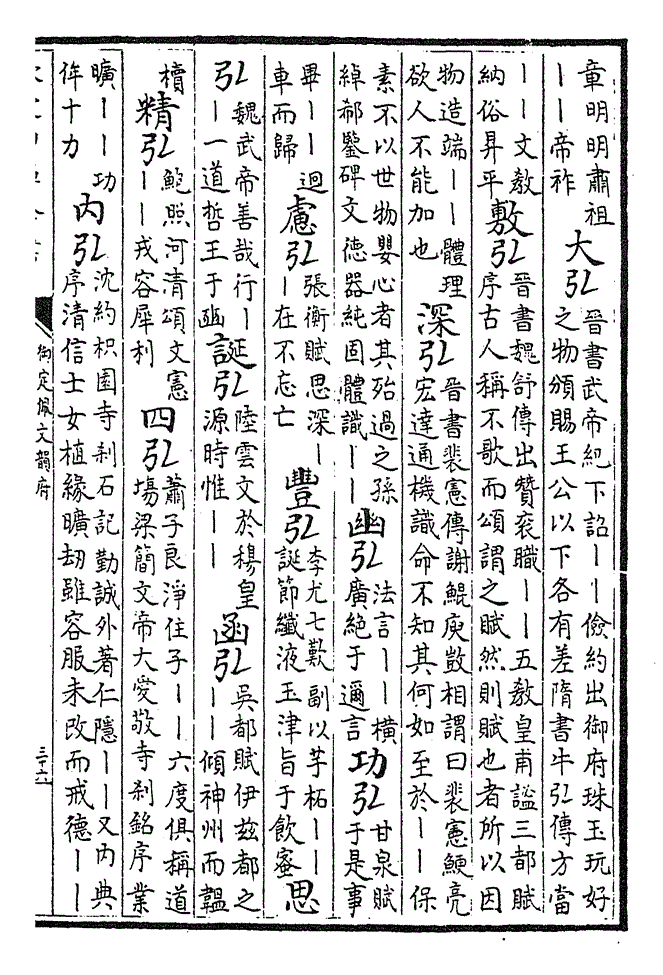 章明明肅祖
——帝祚
大弘
晉書武帝紀下詔——儉約出御府珠玉玩好
之物頒賜王公以下各有差隋書牛弘傳方當
——文敎
納俗昇平
敷弘
晉書魏舒傳出贊衮職——五敎皇甫謐三都賦
序古人稱不歌而頌謂之賦然則賦也者所以因
物造端——體理
欲人不能加也
深弘
晉書裴憲傳謝鯤庾敳相謂曰裴憲鯁亮
宏達通機識命不知其何如至於——保
素不以世物嬰心者其殆過之孫
綽郗鑒碑文德器純固體識——
幽弘
法言——橫
廣絕于邇言
功弘
甘泉賦
于是事
畢——迴
車而歸
慮弘
張衡賦思深—
—在不忘亡
豐弘
李尤七歎副以芋柘——
誕節纖液玉津旨于飲蜜
思
弘
魏武帝善哉行—
—一道哲王于豳
誕弘
陸雲文於楊皇
源時惟——
函弘
吳都賦伊茲都之
——傾神州而韞
櫝
精弘
鮑照河清頌文憲
——戎容犀利
四弘
蕭子良淨住子——六度俱稱道
場梁簡文帝大愛敬寺刹銘序業
曠——功
侔十力
內弘
沈約枳園寺刹石記勤誠外著仁隱——又內典
序清信士女植緣曠劫雖容服未改而戒德——
御定佩文韻府
三十六